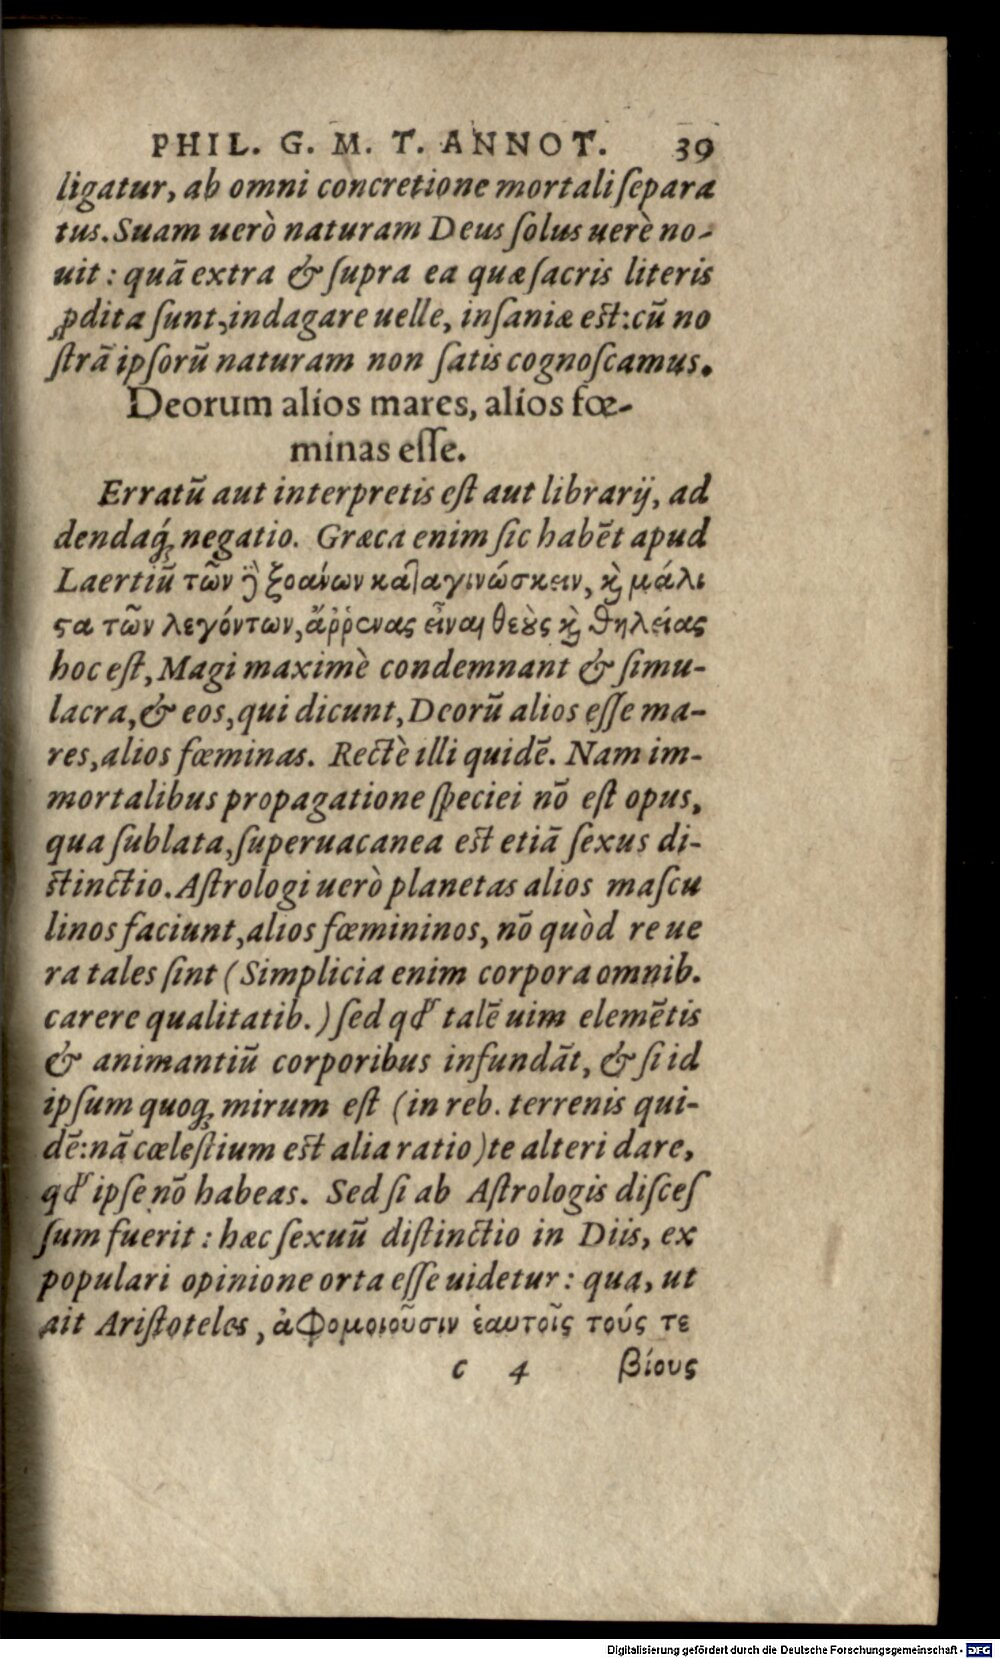 PHIL. G. M. T. ANNOT. 39
ligatur, ab omni concretione mortali ſepara
tus. Suam uerò naturam Deus ſolus uerè no-
uit: quã extra & ſupra ea quæ ſacris literis
ꝓdita ſunt, indagare uelle, inſaniæ eſt: cũ no
ſtrã ipſorũ naturam non ſatis cognoſcamus.
Deorum alios mares, alios fœ-
minas eſſe.
Erratũ aut interpretis eſt aut librarij, ad
dendaq́ꝫ negatio. Græca enim ſic habẽt apud
Laertiũ τῶν ȣ̓͂ ξοάνων καταγινώσκειν, ϗ̀ μάλι
ϛα τῶν λεγόντων, ἄῤῥενας εἶναι θεȣ̀ς ϗ̀ θηλείας
hoc eſt, Magi maximè condemnant & ſimu-
lacra, & eos, qui dicunt, Deorũ alios eſſe ma-
res, alios fœminas. Rectè illi quidẽ. Nam im-
mortalibus propagatione ſpeciei nõ eſt opus,
qua ſublata, ſuperuacanea eſt etiã ſexus di-
ſtinctio. Aſtrologi uerò planetas alios maſcu
linos faciunt, alios fœmininos, nõ quòd re ue
ra tales ſint (Simplicia enim corpora omnib.
carere qualitatib.) ſed qđ talẽ uim elemẽtis
& animantiũ corporibus infundãt, & ſi id
ipſum quoqꝫ mirum eſt (in reb. terrenis qui-
dẽ: nã cœleſtium eſt alia ratio) te alteri dare,
qđ ipſe nõ habeas. Sed ſi ab Aſtrologis diſceſ
ſum fuerit: hæc ſexuũ diſtinctio in Diis, ex
populari opinione orta eſſe uidetur: qua, ut
ait Ariſtoteles, ἀφομοιοῦσιν ἑαυτοῖς τούς τε
c 4 βίους
Digitalisierung gefördert durch die Deutsche Forschungsgemeinschaft - DFG